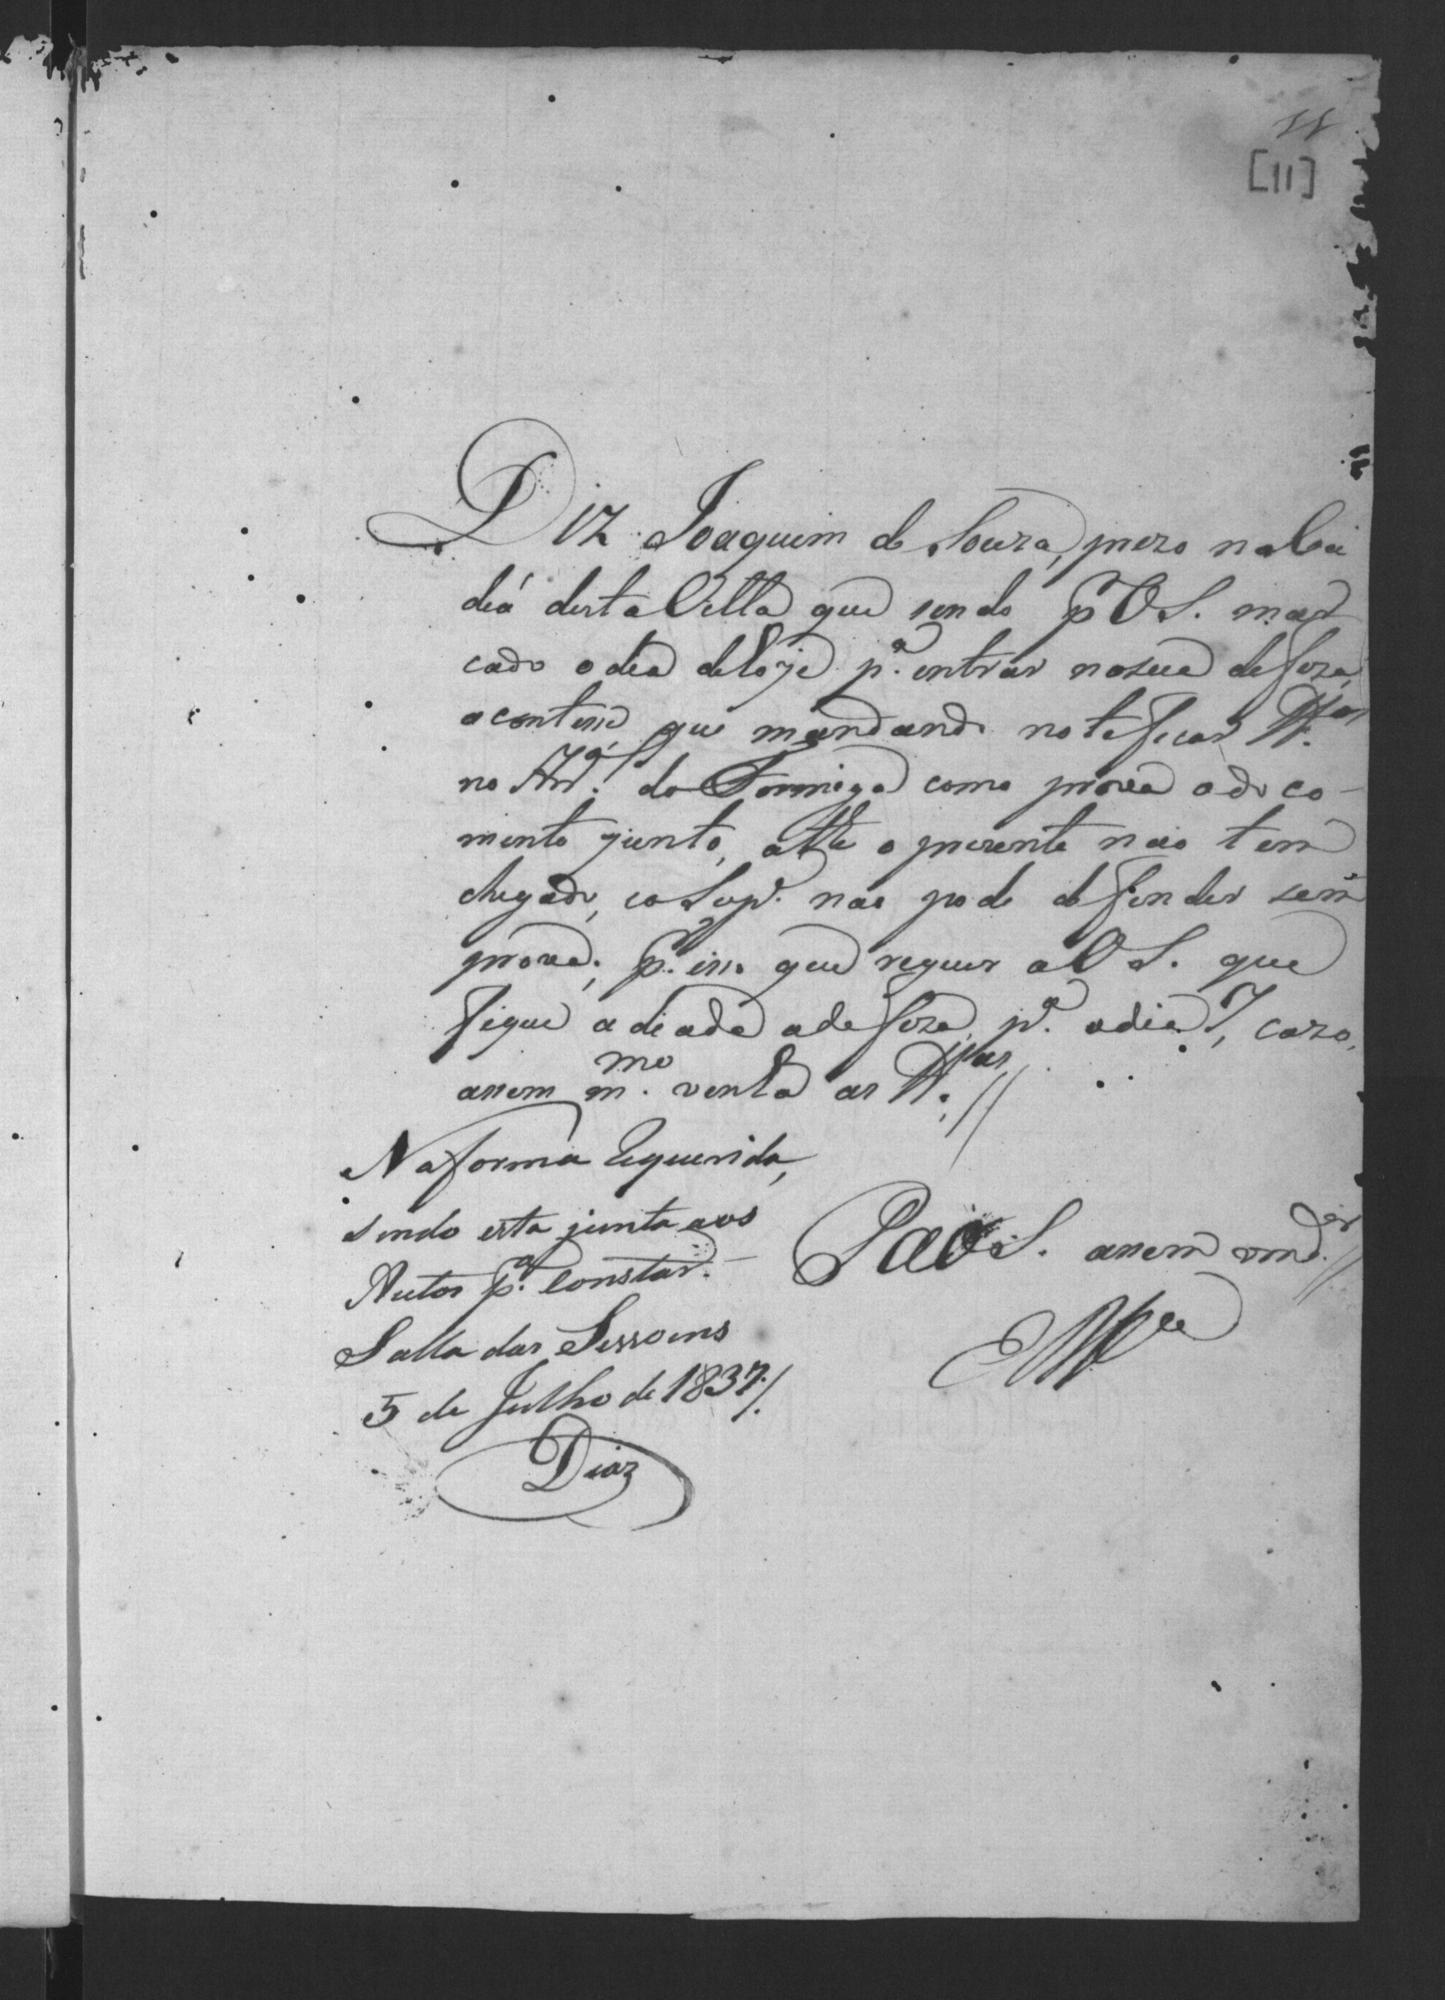 11
[11]
Diz Joaquim de Souza, prezo na Ca
deá desta Villa que sendo p V S. mar
cado o dia de hoje p.ª entrar na sua defeza,
acontese que mandando noteficar tt.as
no Arr.al do Formiga como prova o do co-
mento junto, athe o prezente não tem
chegado, e o Sup.e não pode defender sem
prova; p.r isso que requer a V S. que
fique adeada a defeza, p.ª o dia 7, cazo,
assem m.mo venhã as tt.as //
Na forma Requerida,
sendo esta junta aos
Autos p.ª Constar. -
Salla das Sessoens
5 de Julho de 1837 /.
Dias
P a V S. assem o md.e //
E R M.ce